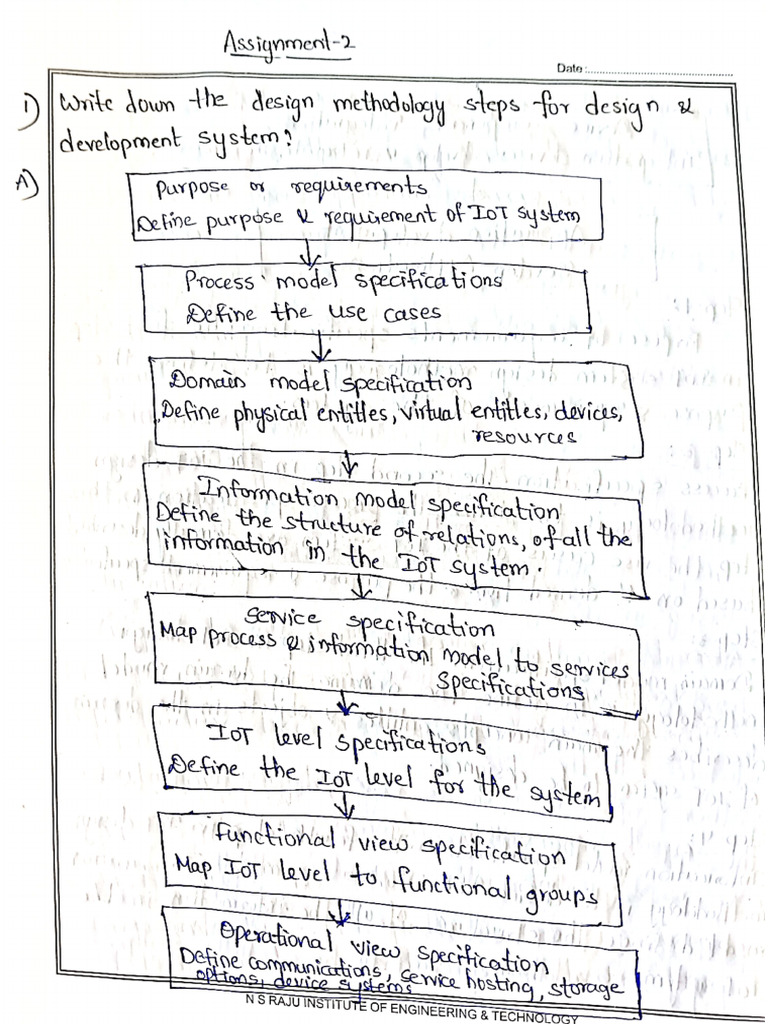 Assignment-2
Date:
1) Write down the design methodology steps for design &
development system?
A)
Purpose or requirements
Define purpose & requirement of IoT system
Process model specifications
Define the use cases
Domain model specification
Define physical entitles, virtual entitles, devices,
resources
Information model specification
Define the structure of relations, of all the
information in the IoT system.
Service specification
Map process & information model to services
Specifications
IoT level specifications
Define the IoT level for the system
Functional view specification
Map IoT level to functional groups
Operational view specification
Define communications, service hosting, storage
options, device systems
N S RAJU INSTITUTE OF ENGINEERING & TECHNOLOGY